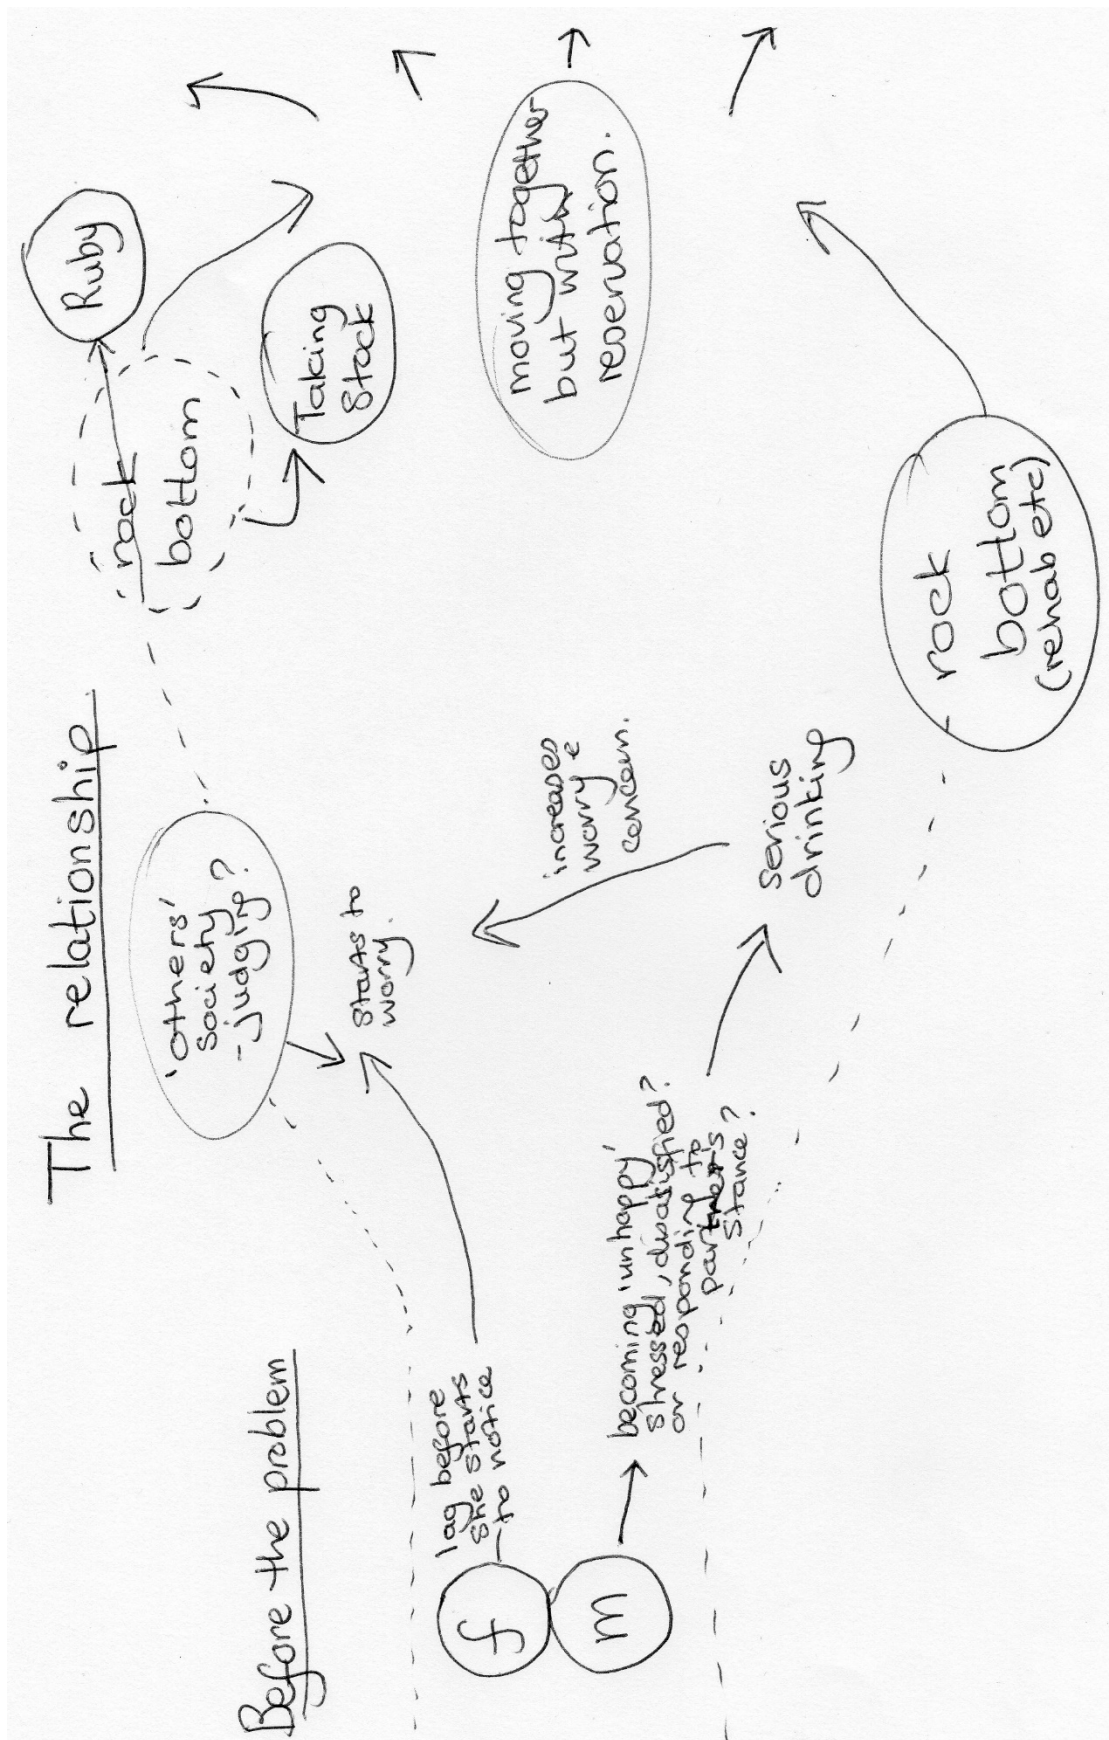 The relationship
Before the problem
f
lag before
she starts
to notice
m
becoming 'unhappy'
stressed, dissatisfied?
or responding to
partner's
stance?
'others'
society
-judging?
starts to
worry.
increases
worry &
concern.
serious
drinking
rock
bottom
Ruby
Taking
Stock
moving together
but with
reservation.
rock
bottom
(rehab etc)